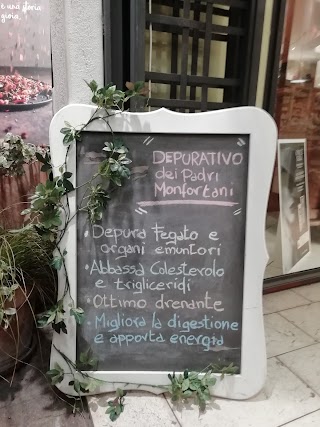 è una storia
gioia
DEPURATIVO
dei Padri
Monfortani
• Depura Fegato e
organi emuntori
• Abbassa Colesterolo
e trigliceridi
• Ottimo drenante
• Migliora la digestione
e apporta energia